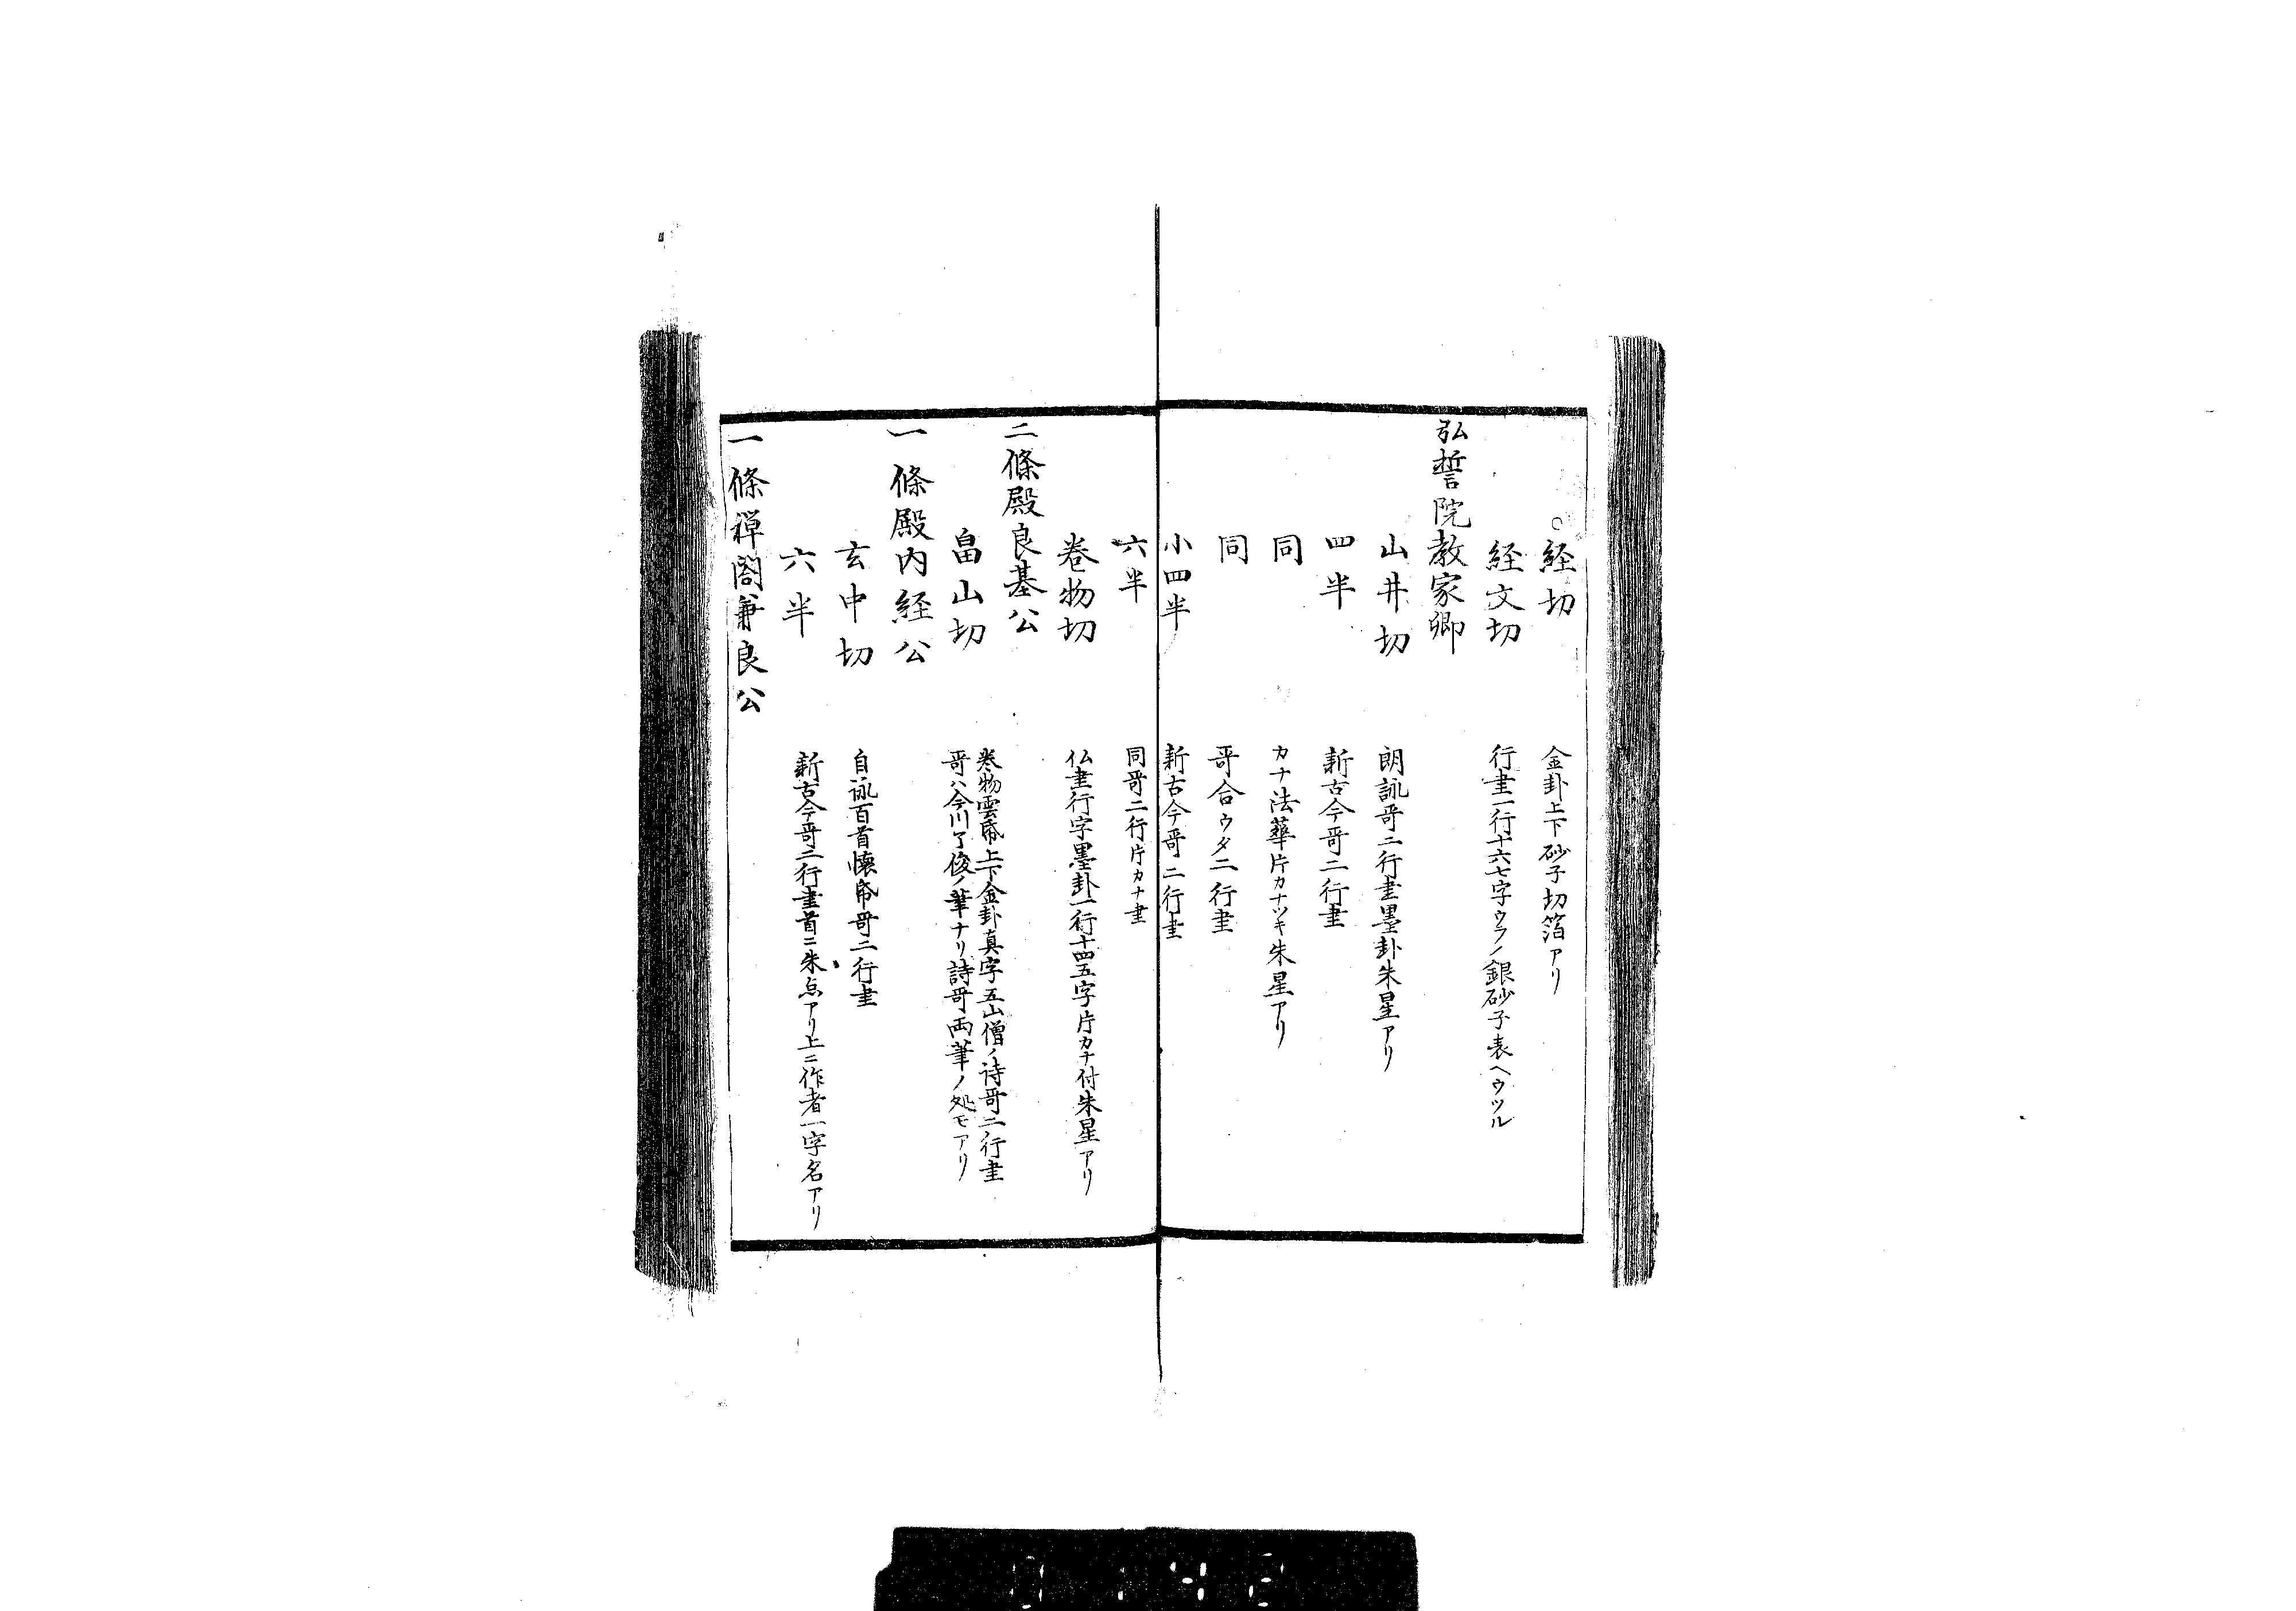 経切 金卦上下砂子切箔アリ
経文切 行書一行十六七字ウラノ銀砂子表ヘウツル
弘誓院教家卿
山井切 朗詠哥二行書墨卦朱星アリ
四半 新古今哥二行書
同 カナ法華片カナツキ朱星アリ
同 哥合ウタ二行書
小四半 新古今哥二行書
六半 同哥二行片カナ書
巻物切 仏書行字墨卦一行十四五字片カナ付朱星アリ
二條殿良基公
畠山切 巻物雲帋上下金卦真字五山僧ノ詩哥二行書
哥ハ今川了俊ノ筆ナリ詩哥両筆ノ処モアリ
一條殿内経公
玄中切 自詠百首懐帋哥二行書
六半 新古今哥二行書首ニ朱点アリ上ニ作者一字名アリ
一條禅閤兼良公